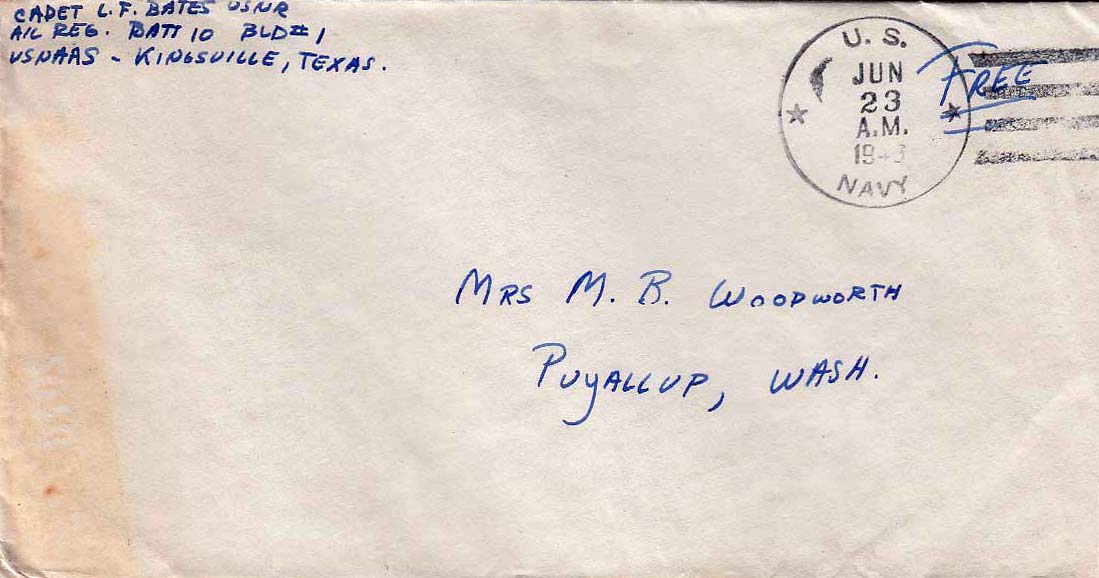 CADET L. F. BATES USNR
A/C REG. BATT 10 BLD# 1
USNAAS - KINGSVILLE, TEXAS.
U. S.
JUN
23
A.M.
1943
NAVY
FREE
MRS M. B. WOODWORTH
PUYALLUP, WASH.